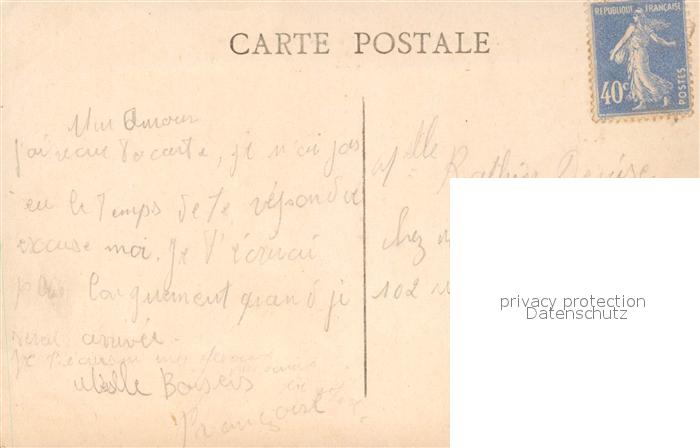 CARTE POSTALE
REPUBLIQUE FRANÇAISE
40c
POSTES
Mon Amour
j'ai recue ta carte, je n'ai pas
eu le Temps de te répondre
excuse moi. Je t'écrirai
plus longuement quand je
serai arrivée.
Mille Baisers
Françoise
Mlle
Denise
chez
102
privacy protection
Datenschutz